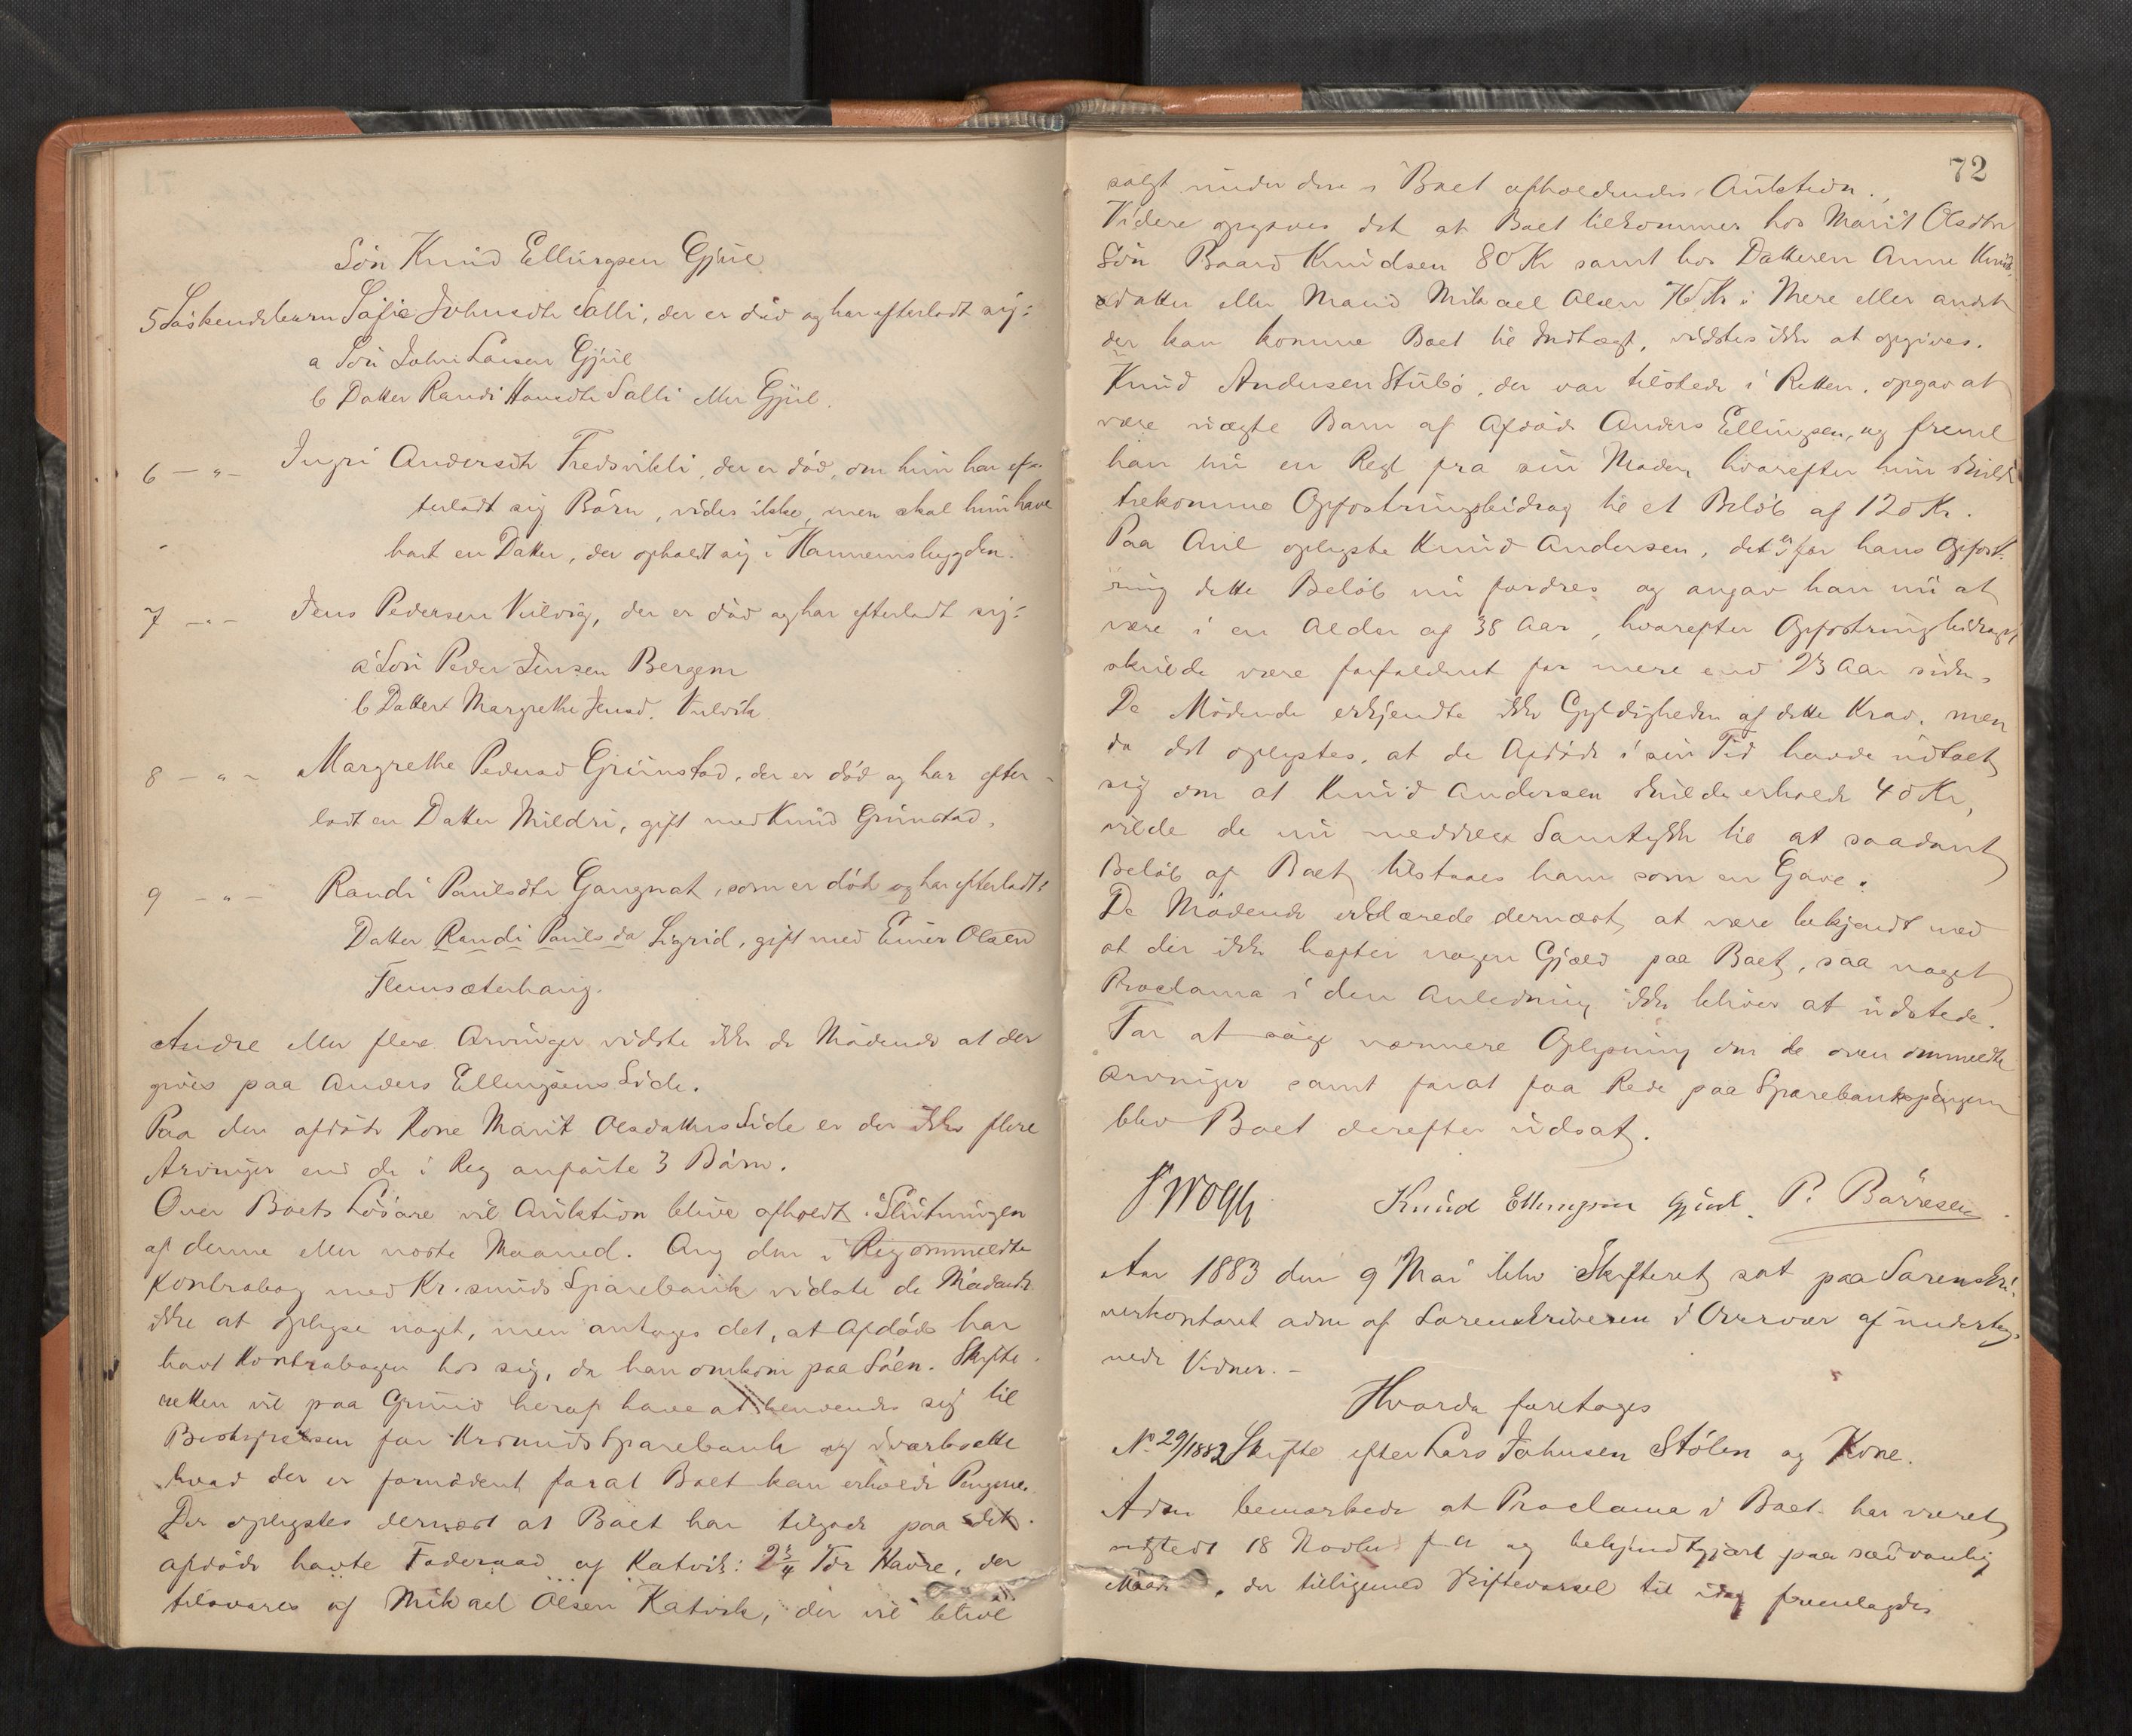 Søn Knud Ellingsen Gjul
5 Søskendebarn Sofie Johnsdtr Salli, der er død og har efterladt sig:
a Søn John Larsen Gjul
b Datter Randi Hansdtr Salli eller Gjul.
6 - " - Ingri Andersdtr Fredsvikli, der er død, om hun har ef-
terladt sig Børn, vides ikke, men skal hun have
havt en Datter, der opholdt sig i Hannemsbygden.
7 - " - Jens Pedersen Vulvig, der er død og har efterladt sig:
a Søn Peder Jensen Bergem
b Datter Margrethe Jensd. Vulvik
8 - " - Margrethe Pedersd Grimstad, der er død og har efter-
ladt en Datter Mildri, gift med Knud Grimstad.
9 - " - Randi Paulsdtr Gangnat, som er død og har efterladt:
Datter Randi Paulsda Sigrid, gift med Einer Olsen
Flemsæterhaug.
Andre eller flere Arvinger vidste ikke de Mødende at der
gives paa Anders Ellingsens Side.
Paa den afdøde Kone Marit Olsdatters Side er der ikke flere
Arvinger end de i Reg anførte 3 Børn.
Over Boets Løsøre vil Auktion blive afholdt i Slutningen
af denne eller næste Maaned. Ang den i Reg ommeldte
Kontrabog med Kr.sunds Sparebank vidste de Mødende
ikke at oplyse noget, men antages det, at Afdøde har
havt Kontrabogen hos sig, da han omkom paa Søen. Skifte-
retten vil paa Grund heraf have at henvende sig til
Bestyrelsen for Krsunds Sparebank og iværksætte
hvad der er fornødent forat Boet kan erholde Pengene.
Der oplystes dernæst at Boet har tilgode paa det
afdøde havte Föderaad af Katvik: 2 3/4 Tdr Havre, der
tilsvares af Mikael Olsen Katvik, der vil blive
72
solgt under den i Boet afholdendes Auktion.
Videre opgaves det at Boet tilkommer hos Marit Olsdtrs
Søn Baard Knudsen 80 Kr samt hos Datteren Anne Knuds-
datter eller Mand Mikael Olsen 76 Kr. Mere eller andet
der kan komme Boet til Indtægt, vidstes ikke at opgives.
Knud Andersen Stubø, der var tilstede i Retten, opgav at
være uægte Barn af Afdøde Anders Ellingsen, og freml
han nu en Regl fra sin Moder, hvorefter hun skulde
tilkomme Opfostringsbidrag til et Beløb af 120 Kr.
Paa Anl oplyste Knud Andersen, det er for hans Opfost-
ring dette Beløb nu fordres og angav han nu at
være i en Alder af 38 Aar, hvorefter Opfostringsbidraget
skulde være forfaldent for mere end 23 Aar siden.
De Mødende erkjendte ikke Gyldigheden af dette Krav, men
da det oplystes, at de Afdøde i sin Tid havde udtalt
sig om at Knud Andersen skulde erholde 40 Kr,
vilde de nu meddele Samtykke til at saadant
Beløb af Boet tilstaaes ham som en Gave.
De Mødende erklærede dernæst, at være bekjendt med
at der ikke hæfter nogen Gjæld paa Boet, saa noget
Proclama i den Anledning ikke bliver at udstede.
For at søge nærmere Oplysning om de oven ommeldte
Arvinger samt forat faa Rede paa Sparebankspengene
blev Boet derefter udsat.
Knud Ellingsen Gjul. P. Børresen
Aar 1883 den 9 Mai blev Skifteret sat paa Sorenskri-
verkontoret adm af Sorenskriveren i Overvær af underteg-
nede Vidner. -
Hvorda foretoges
No 29/1882 Skifte efter Lars Johnsen Stølen og Kone.
Adm bemærkede at Proclama i Boet har været
udstedt 18 Novbr f A og bekjendtgjort paa sædvanlig
Maade, der tilligemed Skiftevarsel til idag fremlagdes